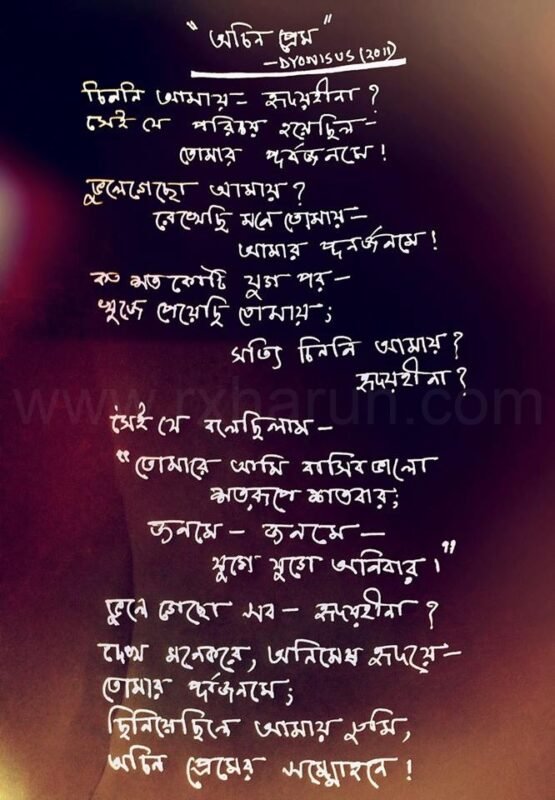 "অচিন প্রেম"
-DYONISUS (2011)
চিননি আমায়- হৃদয়হীনা ?
সেই যে পরিচয় হয়েছিল-
তোমার পূর্বজনমে !
ভুলেগেছো আমায় ?
রেখেছি মনে তোমায়-
আমার পুনর্জনমে !
কত শত কোটি যুগ পর-
খুজে পেয়েছি তোমায় ;
সত্যি চিননি আমায় ?
হৃদয়হীনা ?
www.rxharun.com
সেই যে বলেছিলাম-
"তোমারে আমি বাসিব ভালো
শতরূপে শতবার;
জনমে - জনমে -
যুগে যুগে অনিবার।"
ভুলে গেছো সব- হৃদয়হীনা ?
দেখ মনেকরে, অনিমেষ হৃদয়ে-
তোমার পূর্বজনমে;
ছিনিয়েছিলে আমায় তুমি,
অচিন প্রেমের সম্মোহনে !